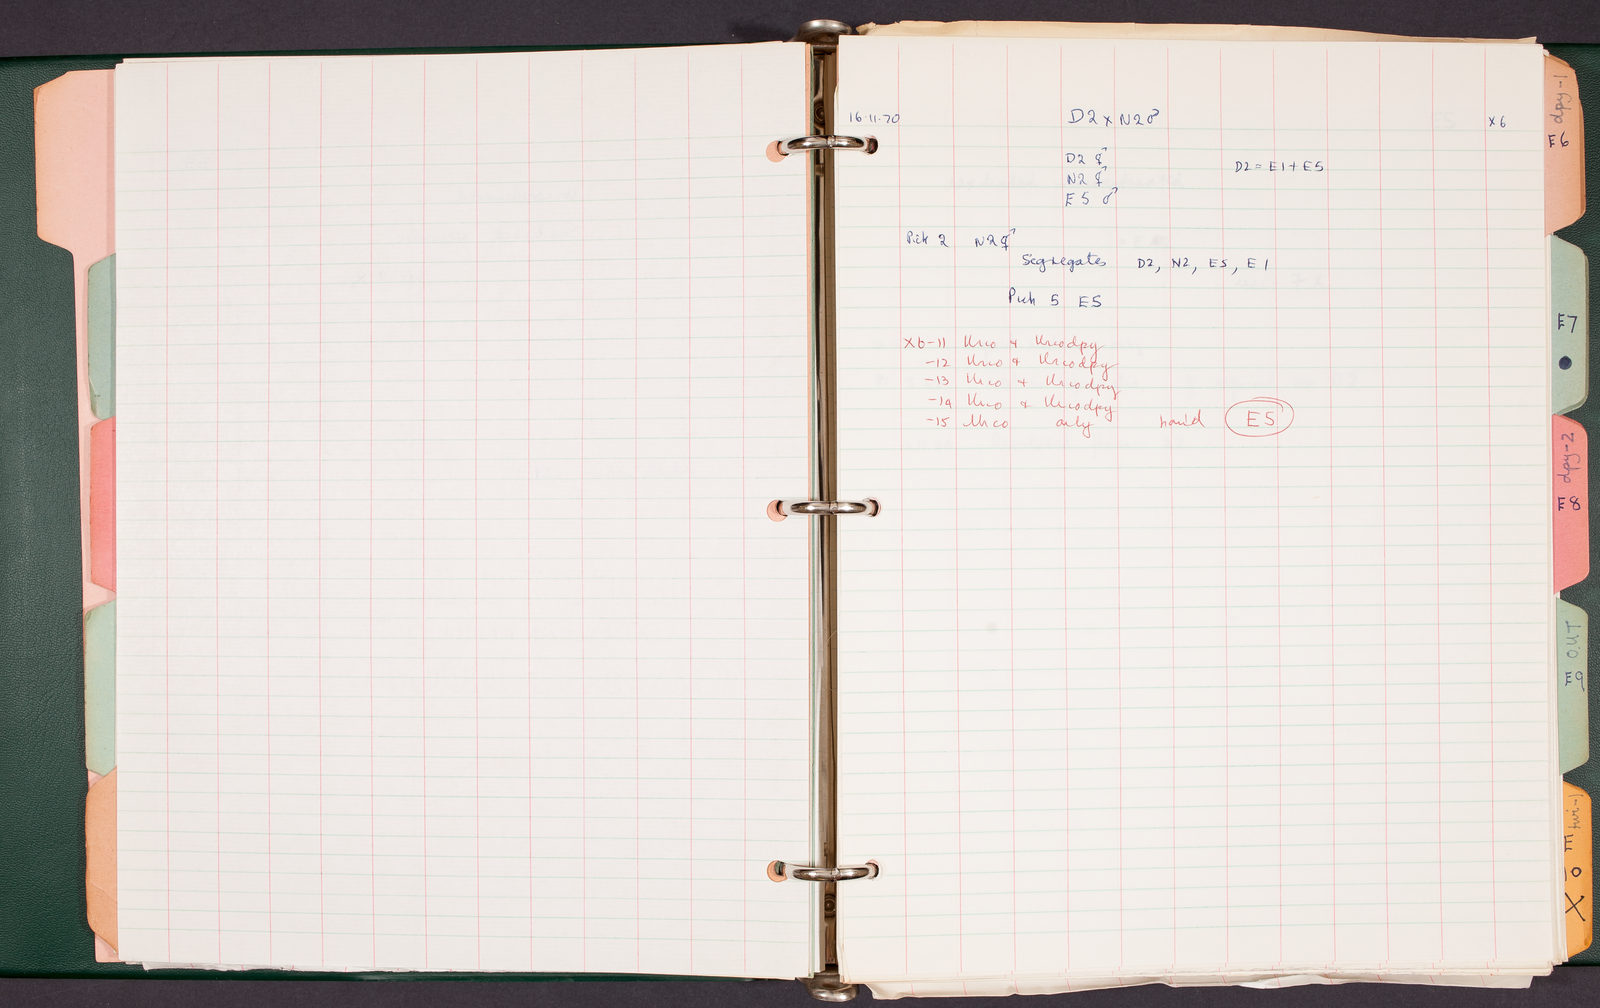 16.11.70 D2 x N2♂ X6
D2 ⚥
N2 ⚥
E5 ♂
D2 = E1 + E5
Pick 2 N2 ⚥
Segregates D2, N2, E5, E1
Pick 5 E5
X6-11 Unco + Uncodpy
-12 Unco + Uncodpy
-13 Unco + Uncodpy
-14 Unco + Uncodpy
-15 Unco only E5
dpy-1
E6
E7
dpy-2
E8
OUT
E9
E
10
X